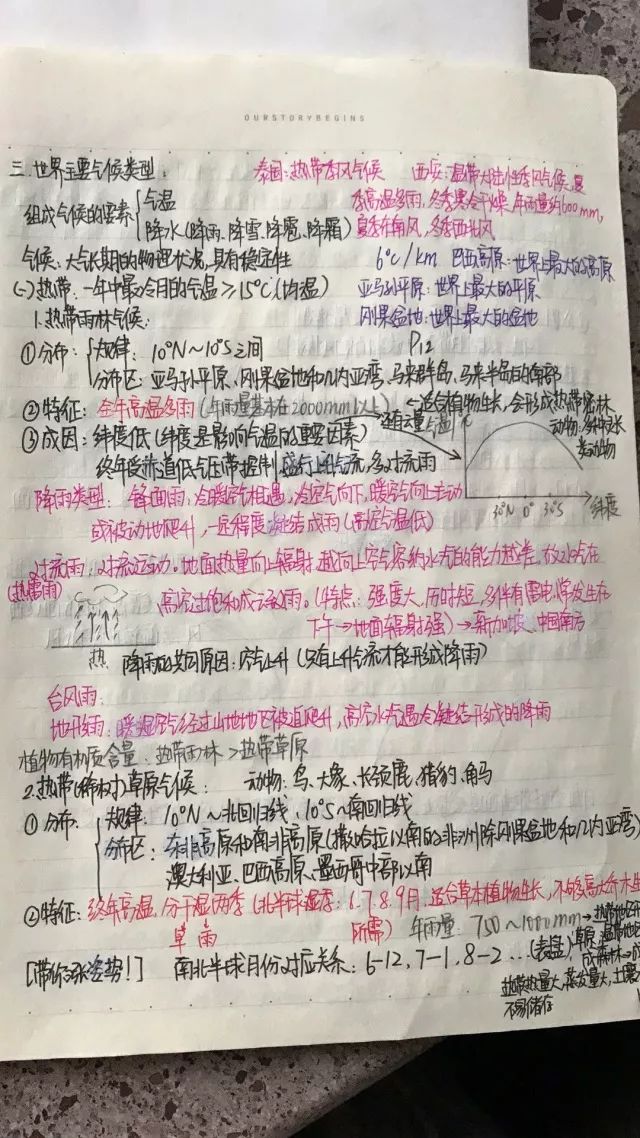 OURSTORYBEGINS
三.世界主要气候类型:
泰国:热带季风气候 西安:温带大陆性季风气候,夏
季高温多雨,冬季寒冷干燥,年雨量约600mm,
组成气候的要素 气温
降水(降雨、降雪、降雹、降霜)
夏季东南风,冬季西北风
气候:大气长期的物理状况,具有稳定性
6℃/km 巴西高原:世界上最大的高原
(一)热带:一年中最冷月的气温≥15℃(均温)
亚马孙平原:世界上最大的平原
1.热带雨林气候:
刚果盆地:世界上最大的盆地
P12
①分布: 规律:10°N~10°S之间
分布区:亚马孙平原、刚果盆地和几内亚湾、马来群岛、马来半岛的南部
②特征:全年高温多雨(年雨量基本在2000mm以上)
←适合植物生长,会形成热带密林
动物:多种
类动物
③成因:纬度低(纬度是影响气温的重要因素)
气温
终年受赤道低气压带控制,盛行上升气流,多对流雨
30°N 0° 30°S
纬度
降雨类型:锋面雨:冷暖空气相遇,冷空气向下,暖空气向上主动
或被动地爬升,一定程度凝结成雨(高空气温低)
对流雨:对流运动。地面热量向上辐射,越向上空气容纳水汽的能力越差,故水汽在
(热雷雨)
高空过饱和成云致雨。(特点:强度大,历时短,多伴有雷电,常发生在
下午→地面辐射强)→新加坡、中国南方
热
降雨的共同原因:空气上升(只有上升气流才能形成降雨)
台风雨:
地形雨:暖湿空气经过山地地区被迫爬升,高空水气遇冷凝结形成的降雨
植物有机质含量:热带雨林>热带草原
2.热带(稀树)草原气候: 动物:鸟、大象、长颈鹿、猎豹、角马
①分布: 规律:10°N~北回归线、10°S~南回归线
分布区:东非高原和南非高原(撒哈拉以南的非洲除刚果盆地和几内亚湾)
澳大利亚、巴西高原、墨西哥中部以南
②特征:终年高温,分干湿两季(北半球湿季:6.7.8.9月,适合草本植物生长,不够高大乔木生
旱 雨 所需)
年雨量:750~1000mm→热带
草原
[带你涨姿势!] 南北半球月份对应关系:6-12,7-1,8-2…(表盘)
热带热量大,蒸发量大,土壤
不易储存